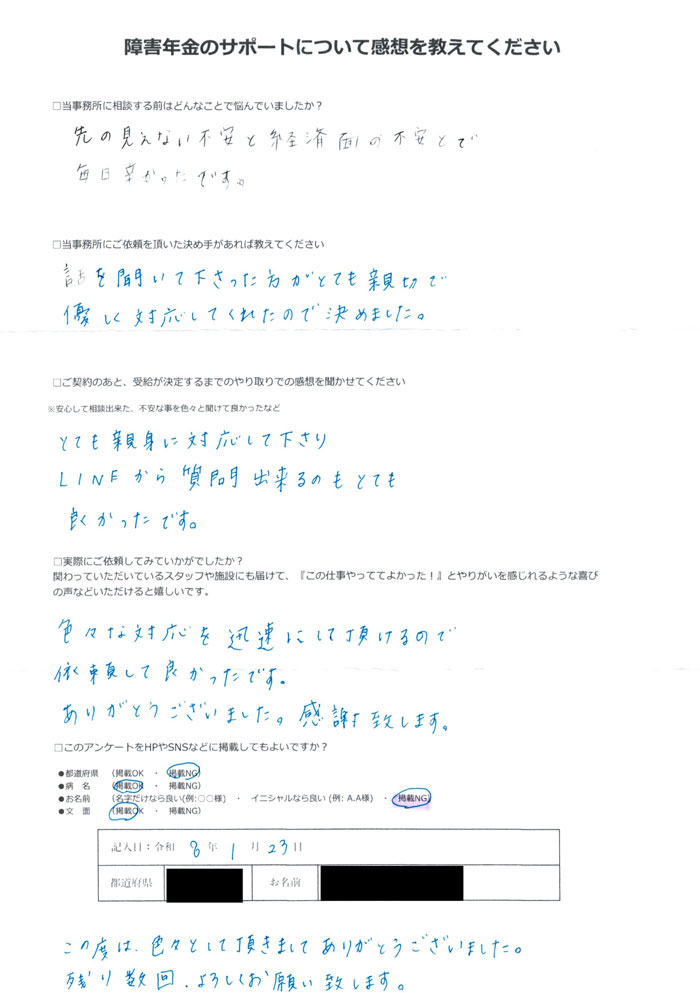 障害年金のサポートについて感想を教えてください
□当事務所に相談する前はどんなことで悩んでいましたか？
先の見えない不安と経済面の不安とで
毎日辛かったです。
□当事務所にご依頼を頂いた決め手があれば教えてください
話を聞いて下さった方がとても親切で
優しく対応してくれたので決めました。
□ご契約のあと、受給が決定するまでのやり取りでの感想を聞かせてください
※安心して相談出来た、不安な事を色々と聞けて良かったなど
とても親身に対応して下さり
LINEから質問出来るのもとても
良かったです。
□実際にご依頼してみていかがでしたか？
関わっていただいているスタッフや施設にも届けて、『この仕事やっててよかった！』とやりがいを感じれるような喜び
の声などいただけると嬉しいです。
色々な対応を迅速にして頂けるので
依頼して良かったです。
ありがとうございました。感謝致します。
□このアンケートをHPやSNSなどに掲載してもよいですか？
●都道府県 （掲載OK ・ 掲載NG）
●病 名 （掲載OK ・ 掲載NG）
●お名前 （名字だけなら良い(例:○○様) ・ イニシャルなら良い (例: A.A様) ・ 掲載NG）
●文 面 （掲載OK ・ 掲載NG）
記入日：令和 8 年 1 月 23 日
都道府県 お名前
この度は、色々として頂きまして ありがとうございました。
残り数回、よろしくお願い致します。